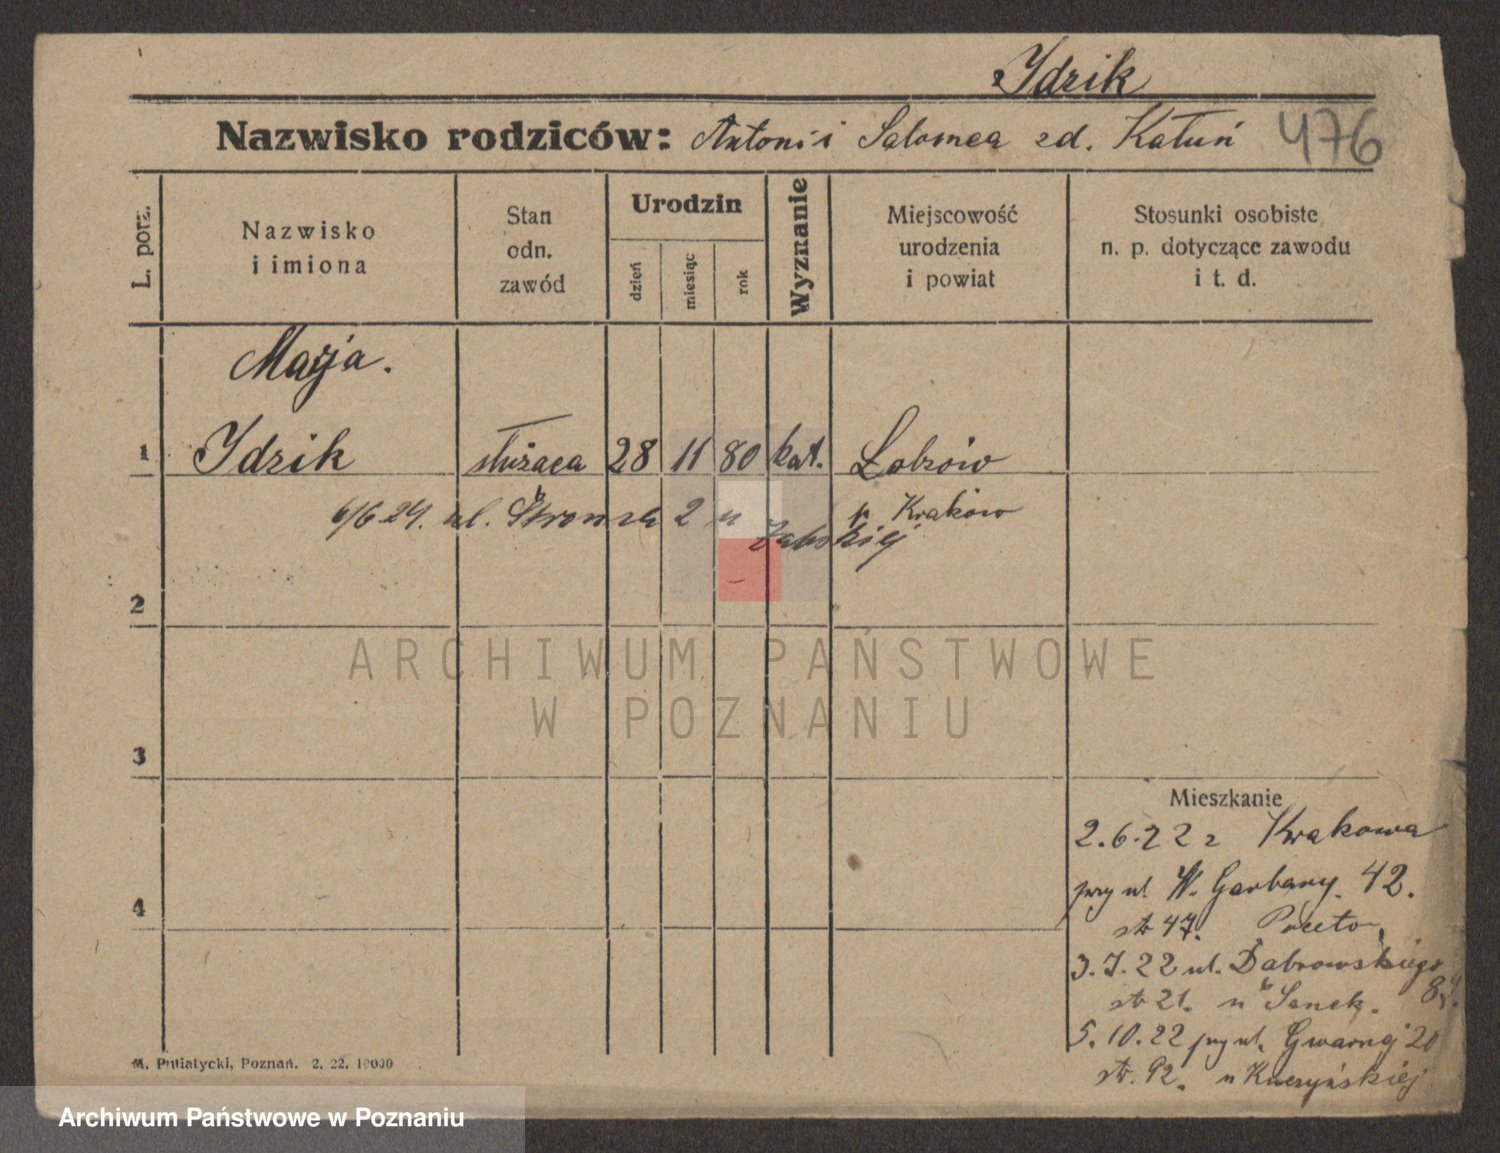 Idzik
Nazwisko rodziców: Antoni i Salomea zd. Kałuń 476
L. porz.
Nazwisko
i imiona
Stan
odn.
zawód
Urodzin
dzień
miesiąc
rok
Wyznanie
Miejscowość
urodzenia
i powiat
Stosunki osobiste
n. p. dotyczące zawodu
i t. d.
Marja.
1 Idzik służąca 28 11 80 kat. Łobzów
6/6.24. ul. Stroma 2 u p. Kraków
Żabskiej
2
3
4
ARCHIWUM PAŃSTWOWE
W POZNANIU
Mieszkanie
2.6.22 z Krakowa
przy ul. W. Garbary. 42.
str 47.
3.7.22 ul. Dąbrowskiego
str 21. u Sanek.
5.10.22 przy ul. Gwarnej 20
str. 92. u Kuczyńskiej
M. Putiatycki, Poznań. 2. 22. 10000
Archiwum Państwowe w Poznaniu